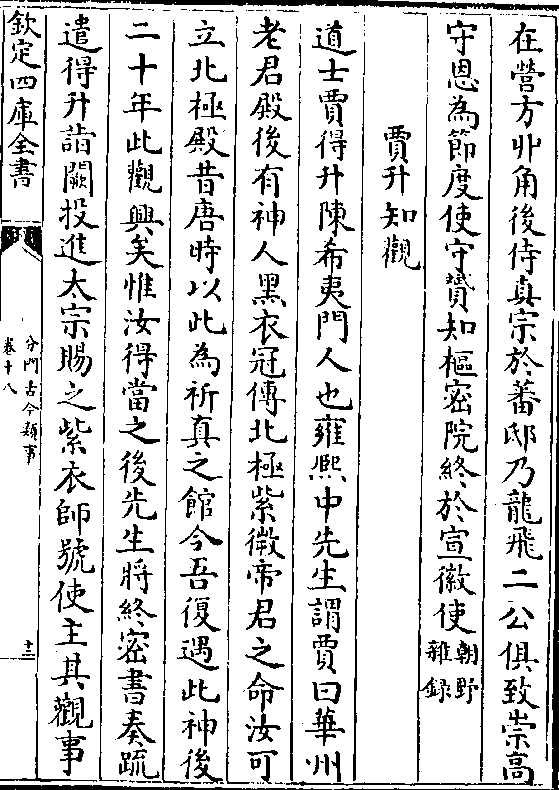 在營方丱角後侍真宗於蕃邸乃龍飛二公俱致崇高
守恩為節度使守贇知樞密院終於宣徽使朝野雜錄
賈升知觀
道士賈得升陳希夷門人也雍熙中先生謂賈曰華州
老君殿後有神人黑衣冠傳北極紫微帝君之命汝可
立北極殿昔唐時以此為祈真之館今吾復遇此神後
二十年此觀興矣惟汝得當之後先生將終密書奏疏
遣得升詣闕投進太宗賜之紫衣師號使主其觀事
欽定四庫全書
分門古今類事
卷十八
十三